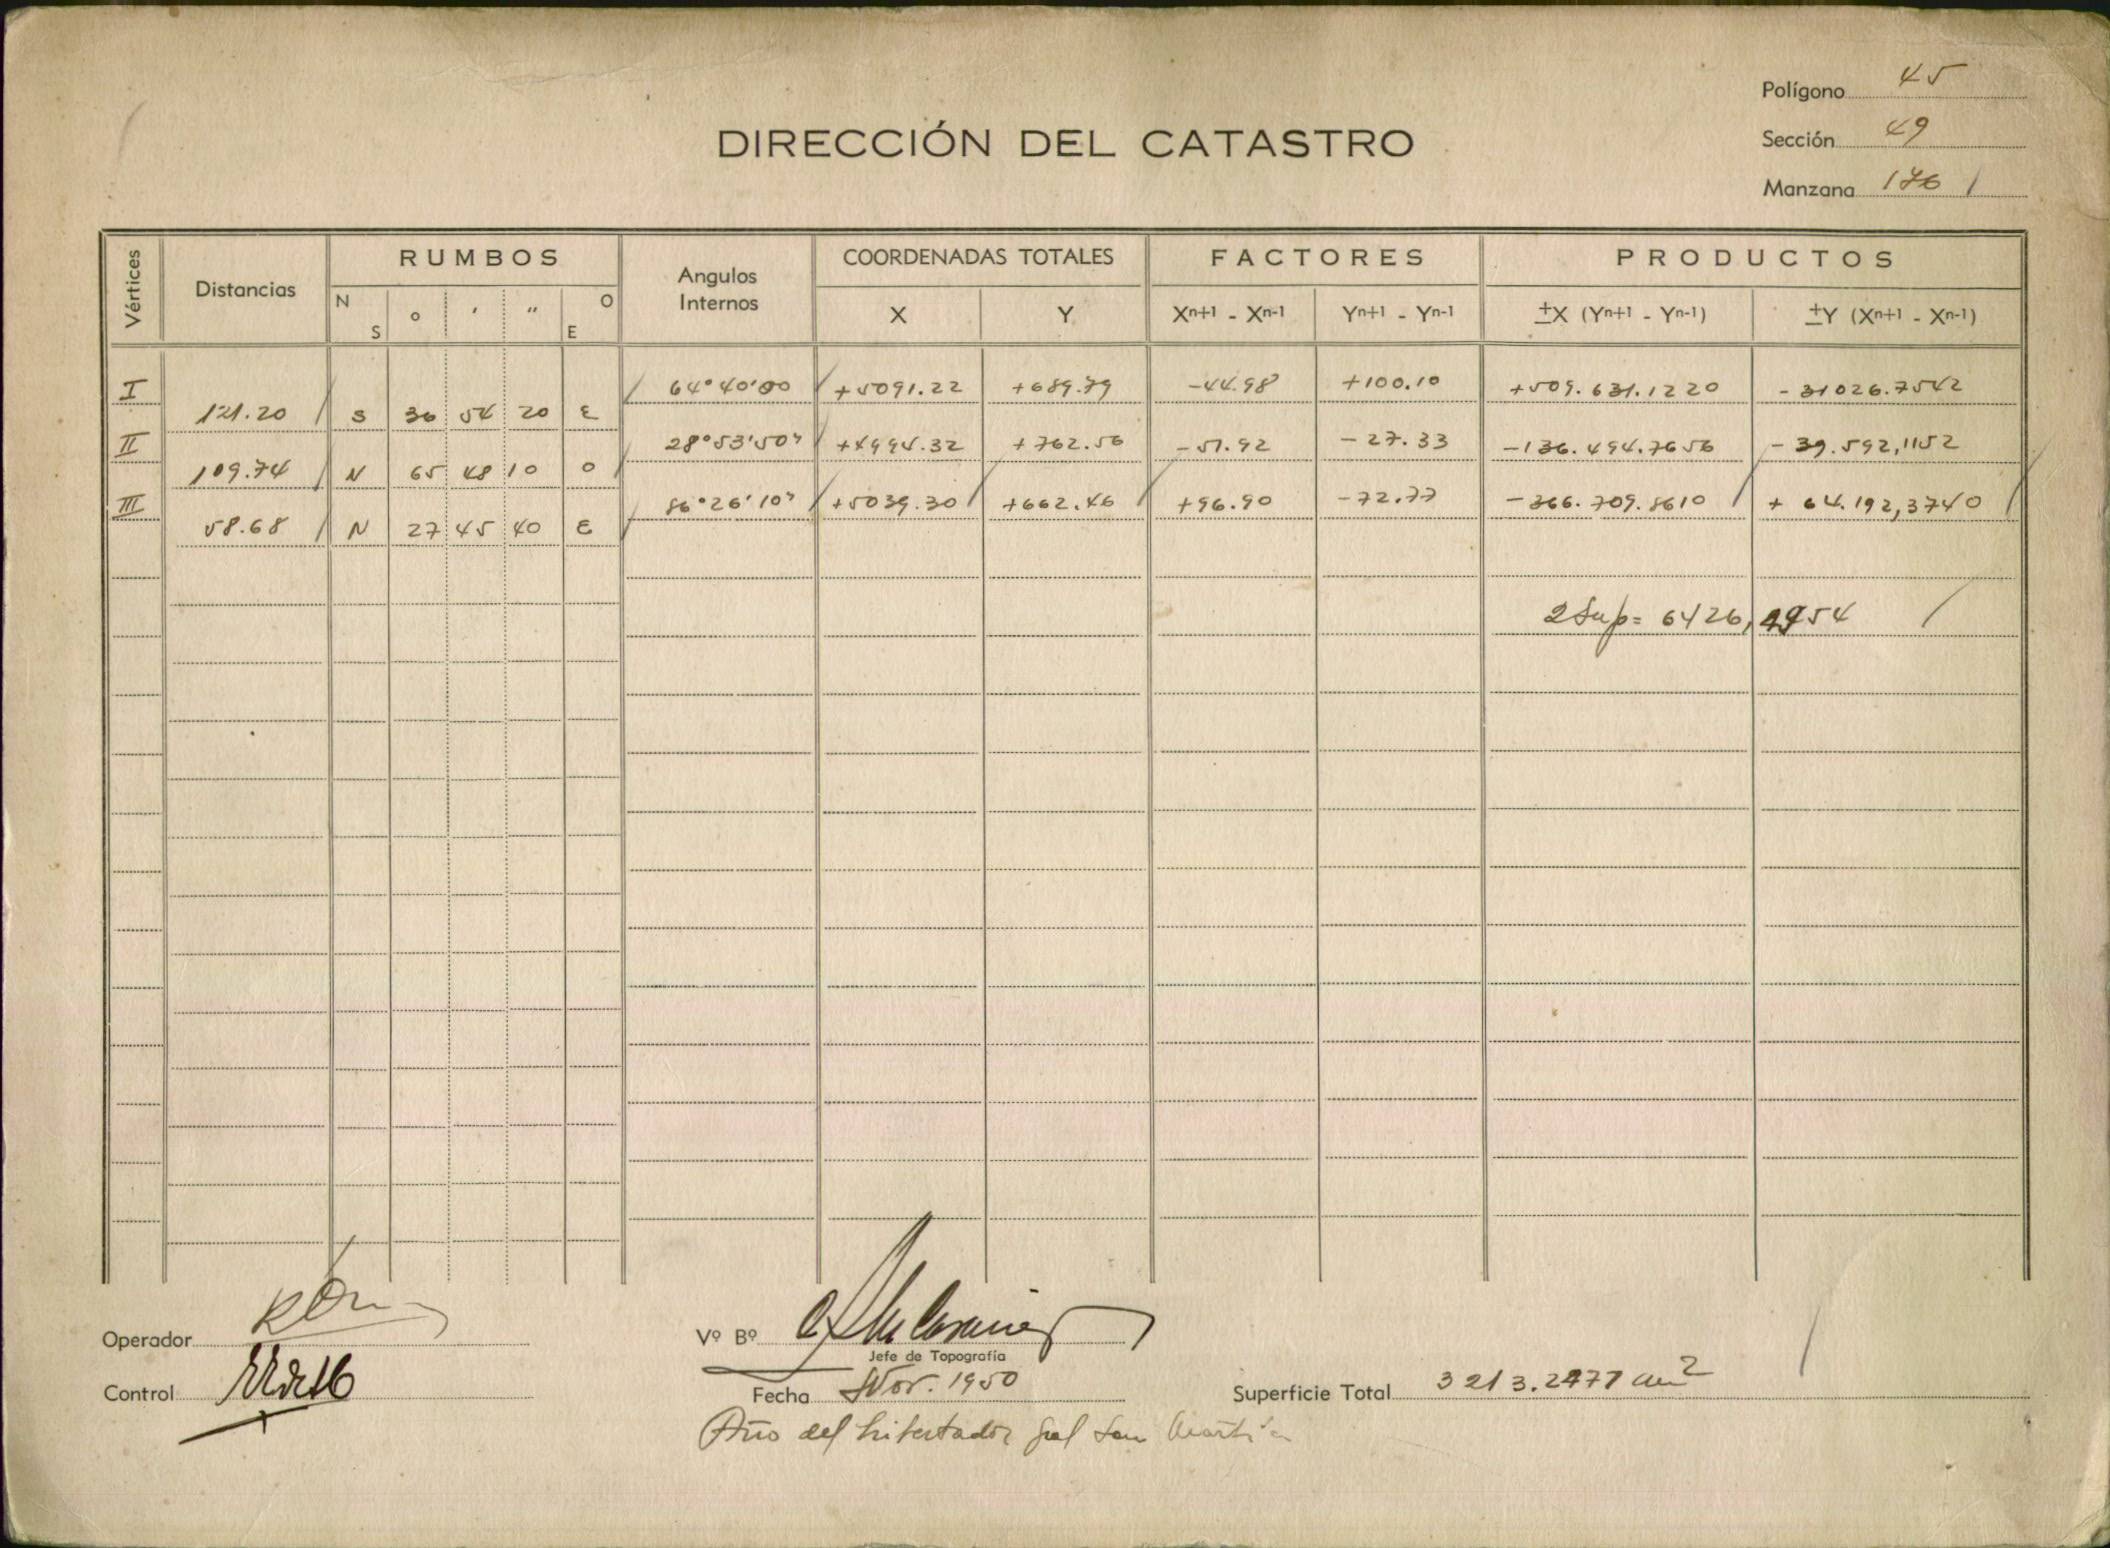 Polígono 45
DIRECCIÓN DEL CATASTRO
Sección 49
Manzana 176
Vértices Distancias RUMBOS Angulos Internos COORDENADAS TOTALES FACTORES PRODUCTOS
N S o ' " O E X Y Xn+1 - Xn-1 Yn+1 - Yn-1 ±X (Yn+1 - Yn-1) ±Y (Xn+1 - Xn-1)
I 64°40'00 +5091.22 +689.79 -44.98 +100.10 +509.631.1220 -31026.7542
121.20 S 36 54 20 E
II 28°53'50" +4994.32 +762.56 -51.92 -27.33 -136.494.7656 -39.592,1152
109.74 N 65 48 10 O
III 86°26'10" +5039.30 +662.46 +96.90 -72.77 -366.709.8610 + 64.192,3740
58.68 N 27 45 40 E
2Sup= 6426,4954
Operador
Vº Bº
Jefe de Topografía
Control
Fecha Nov. 1950
Superficie Total 3213.2477 m2
Año del Libertador Gral San Martín